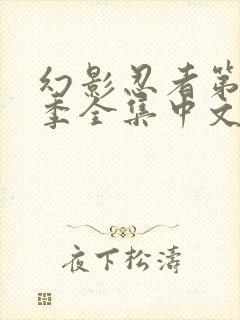 幻影忍者第
季全集中文
夜下松濤